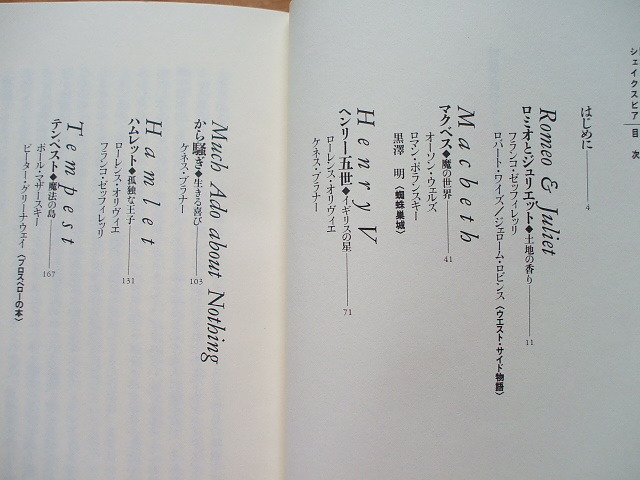 シェイクスピア│目次
はじめに――4
Romeo & Juliet
ロミオとジュリエット◆土地の香り――11
フランコ・ゼッフィレッリ
ロバート・ワイズ／ジェローム・ロビンス〈ウエスト・サイド物語〉
Macbeth
マクベス◆魔の世界――41
オーソン・ウェルズ
ロマン・ポランスキー
黒澤 明〈蜘蛛巣城〉
Henry V
ヘンリー五世◆イギリスの星――71
ローレンス・オリヴィエ
ケネス・ブラナー
Much Ado about Nothing
から騒ぎ◆生きる喜び――103
ケネス・ブラナー
Hamlet
ハムレット◆孤独な王子――131
ローレンス・オリヴィエ
フランコ・ゼッフィレッリ
Tempest
テンペスト◆魔法の島――167
ポール・マザースキー
ピーター・グリーナウェイ〈プロスペローの本〉